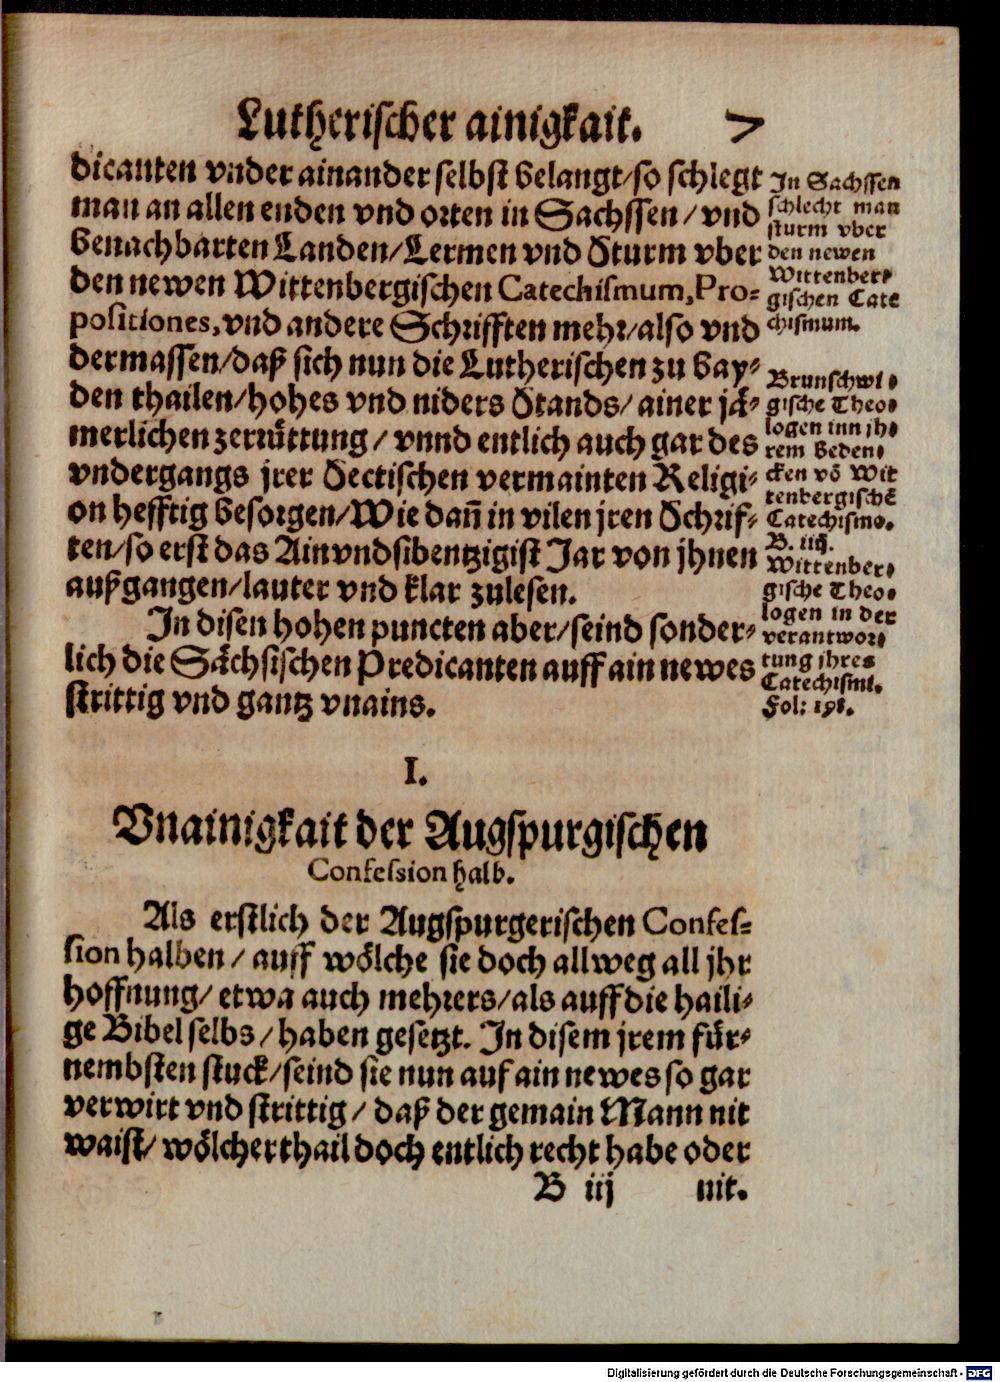 Lutherischer ainigkait. 7
dicanten vnder ainander selbst belangt/so schlegt
man an allen enden vnd orten in Sachssen/vnd
benachbarten Landen/Lermen vnd Sturm vber
den newen Wittenbergischen Catechismum, Pro-
positiones, vnd andere Schrifften mehr/also vnd
dermassen/daß sich nun die Lutherischen zu bay-
den thailen/hohes vnd niders Stands/ainer jä-
merlichen zerrüttung/vnnd entlich auch gar des
vndergangs jrer Sectischen vermainten Religi-
on hefftig besorgen/Wie dañ in vilen jren Schrif-
ten/so erst das Ainvndsibentzigist Jar von jhnen
außgangen/lauter vnd klar zulesen.
In disen hohen puncten aber/seind sonder-
lich die Sächsischen Predicanten auff ain newes
strittig vnd gantz vnains.
In Sachssen
schlecht man
sturm vber
den newen
Wittenber-
gischen Cate
chismum.
Brunschwi-
gische Theo-
logen inn jh-
rem beden-
cken võ Wit
tenbergischẽ
Catechismo.
B. iiij.
Wittenber-
gische Theo-
logen in der
verantwor-
tung jhres
Catechismi.
Fol:
I.
Vnainigkait der Augspurgischen
Confession halb.
Als erstlich der Augspurgerischen Confes-
sion halben/auff wölche sie doch allweg all jhr
hoffnung/etwa auch mehrers/als auff die haili-
ge Bibel selbs/haben gesetzt. In disem jrem für-
nembsten stuck/seind sie nun auf ain newes so gar
verwirt vnd strittig/daß der gemain Mann nit
waist/wölcher thail doch entlich recht habe oder
B iij nit.
Digitalisierung gefördert durch die Deutsche Forschungsgemeinschaft - DFG